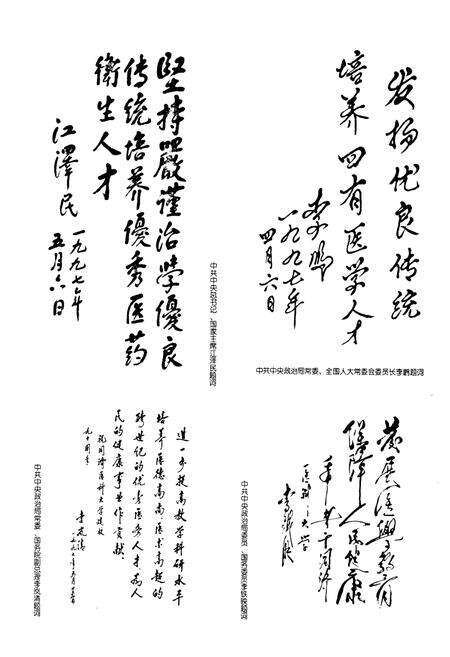 堅持嚴謹治學優良
传统培养優秀医药
衛生人才
江澤民
一九九七年
五月六日
中共中央总书记、国家主席江泽民题词
发扬优良传统
培养四有医学人才
李鹏
一九九七年
四月六日
中共中央政治局常委、全国人大常委会委员长李鹏题词
进一步提高教学科研水平
培养医德高尚医术高超的
跨世纪的优秀医务人才为人
民的健康事业作贡献
祝同济医科大学建校
九十周年
李岚清
中共中央政治局常委、国务院副总理李岚清题词
发展医学教育
保障人民健康
李铁映
中共中央政治局委员、国务委员李铁映题词